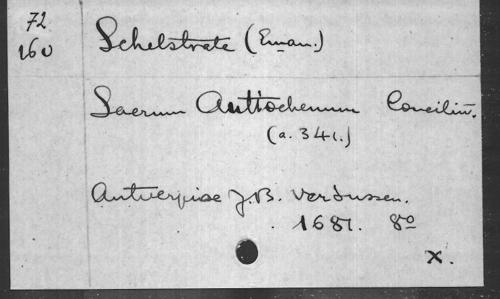 72
160
Schelstrate (Eman.)
Sacrum Antiochenum Conciliū.
(a. 341.)
Antverpiae J.B. Verdussen.
1681. 8º
X.